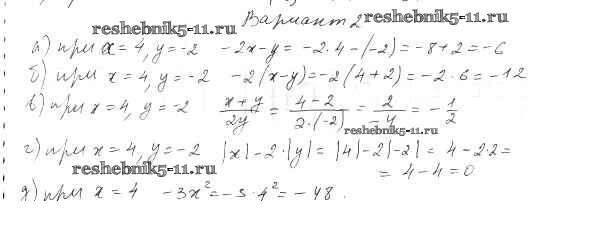 reshebnik5-11.ru Вариант 2 reshebnik5-11.ru
а) при x = 4, y = -2 -2x - y = -2·4 - (-2) = -8 + 2 = -6
б) при x = 4, y = -2 -2(x-y) = -2(4+2) = -2·6 = -12
в) при x = 4, y = -2 (x+y)/(2y) = (4-2)/(2·(-2)) = 2/(-4) = -1/2
reshebnik5-11.ru
г) при x = 4, y = -2 |x| - 2·|y| = |4| - 2|-2| = 4 - 2·2 =
= 4 - 4 = 0
reshebnik5-11.ru
д) при x = 4 -3x² = -3·4² = -48.